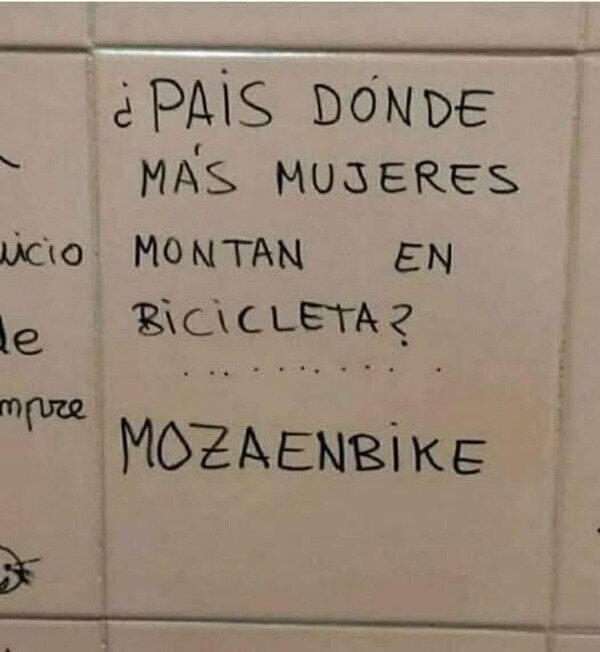 ¿PAIS DÓNDE
MÁS MUJERES
MONTAN EN
BICICLETA?
..........
MOZAENBIKE
uicio
de
mpre